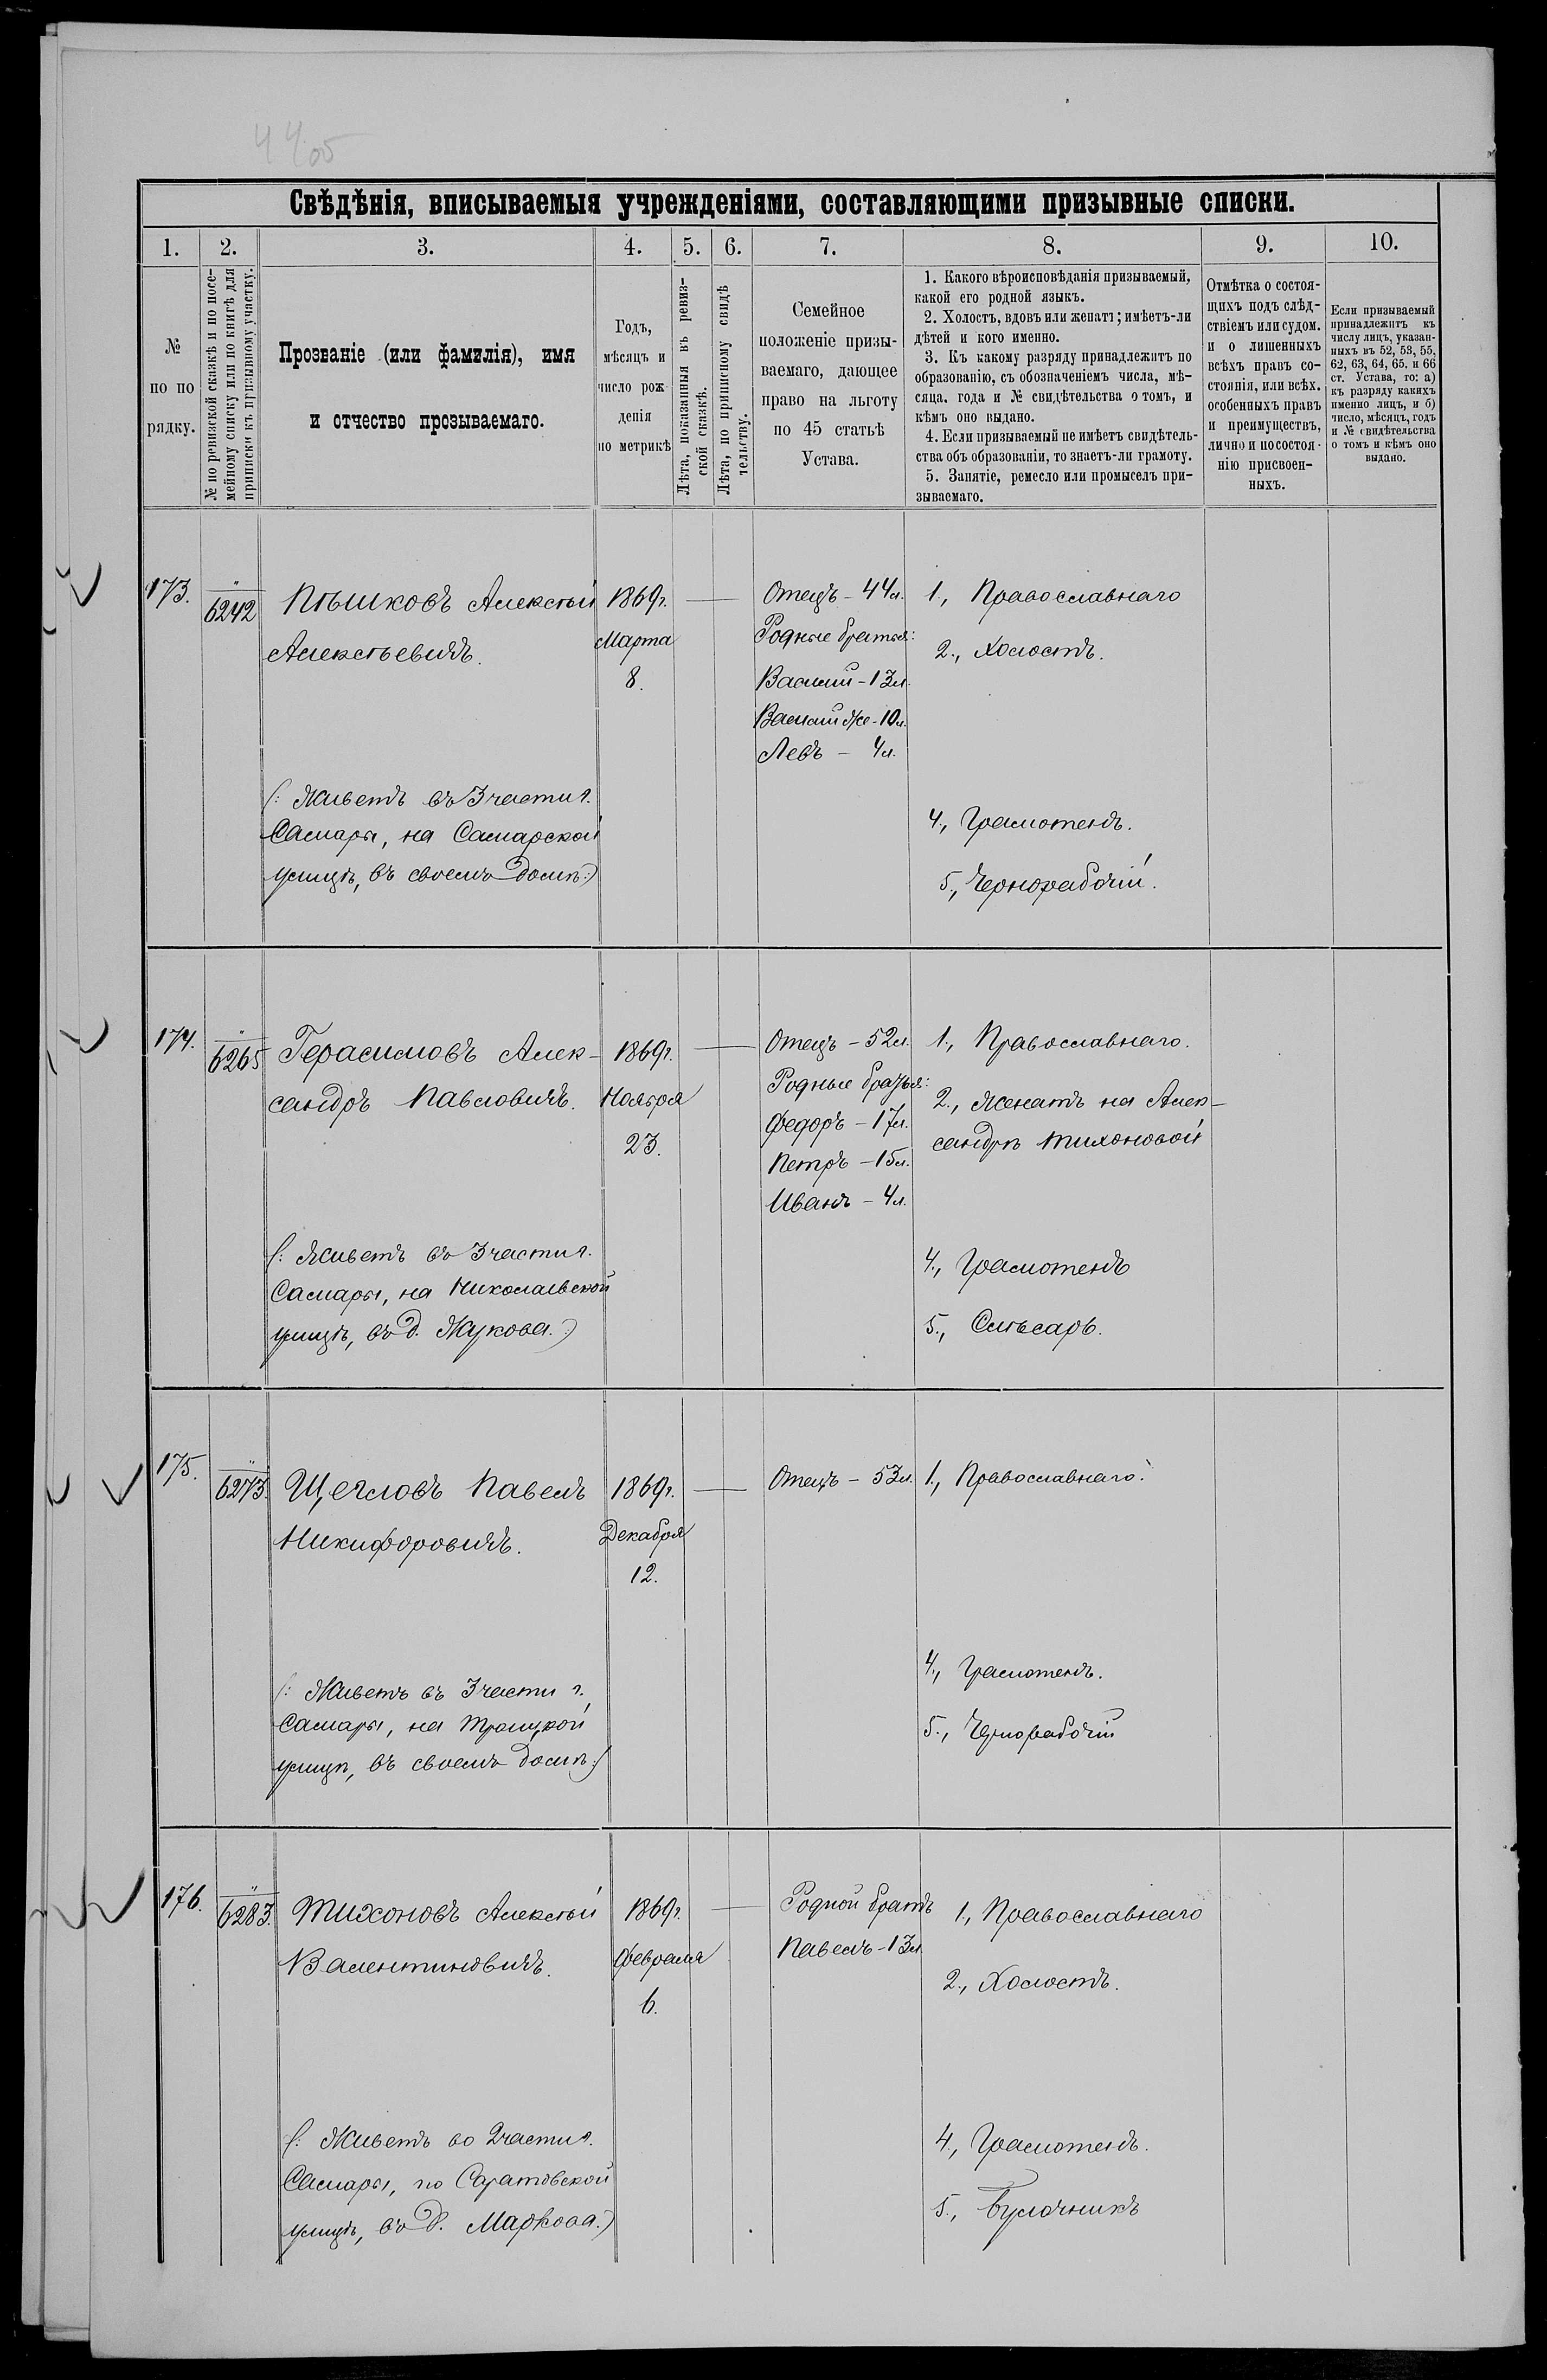 44об
Свѣдѣнія, вписываемыя учрежденіями, составляющими призывные списки.
1. 2. 3. 4. 5. 6. 7. 8. 9. 10.
№
по по
рядку.
№ по ревизской сказкѣ и по посе-
мейному списку или по книгѣ для
приписки къ призывному участку.
Прозваніе (или фамилія), имя
и отчество прозываемаго.
Годъ,
мѣсяцъ и
число рож
денія
по метрикѣ
Лѣта, показанныя въ ревиз-
ской сказкѣ.
Лѣта, по приписному свидѣ
тельству.
Семейное
положеніе призы-
ваемаго, дающее
право на льготу
по 45 статьѣ
Устава.
1. Какого вѣроисповѣданія призываемый,
какой его родной языкъ.
2. Холостъ, вдовъ или женатъ; имѣетъ-ли
дѣтей и кого именно.
3. Къ какому разряду принадлежитъ по
образованію, съ обозначеніемъ числа, мѣ-
сяца. года и № свидѣтельства о томъ, и
кѣмъ оно выдано.
4. Если призываемый не имѣетъ свидѣтель-
ства объ образованіи, то знаетъ-ли грамоту.
5. Занятіе, ремесло или промыселъ при-
зываемаго.
Отмѣтка о состоя-
щихъ подъ слѣд-
ствіемъ или судом.
и о лишенныхъ
всѣхъ правъ со-
стоянія, или всѣх.
особенныхъ правъ
и преимуществъ,
лично и посостоя-
нію присвоен-
ныхъ.
Если призываемый
принадлежитъ къ
числу лицъ, указан-
ныхъ въ 52, 53, 55,
62, 63, 64, 65. и 66
ст. Устава, то: а)
къ разряду какихъ
именно лицъ, и б)
число, мѣсяцъ, годъ
и № свидѣтельства
о томъ и кѣмъ оно
выдано.
173.
"
6242
Пѣшковъ Алексѣй
Алексѣевичъ.
(: Живетъ въ 3 части г.
Самары, на Самарской
улицѣ, въ своемъ домѣ:)
1869г.
Марта
8.
Отецъ - 44л.
Родные братья:
Василій - 13л.
Василій же - 10л.
Левъ - 4л.
1., Православнаго
2., Холостъ.
4., Грамотенъ.
5., Чернорабочій.
174.
"
6265
Герасимовъ Алек-
сандръ Павловичъ.
(: Живетъ въ 3 части г.
Самары, на Николаевской
улицѣ, въ д. Жукова.:)
1869г.
Ноября
23.
Отецъ - 52л.
Родные братья:
Федоръ - 17л.
Петръ - 15л.
Иванъ - 4л.
1., Православнаго.
2., Женатъ на Алек-
сандрѣ Тихоновой
4., Грамотенъ
5., Слѣсарь.
175.
"
6273.
Щегловъ Павелъ
Никифоровичъ.
(: Живетъ въ 3 части г.
Самары, на Троицкой
улицѣ, въ своемъ домѣ:)
1869г.
Декабря
12.
Отецъ - 53л.
1., Православнаго.
4., Грамотенъ.
5., Чернорабочій
176.
"
6283.
Тихоновъ Алексѣй
Валентиновичъ.
(: Живетъ во 2 части г.
Самары, по Саратовской
улицѣ, въ д. Маркова.:)
1869г.
Февраля
6.
Родной братъ
Павелъ - 13л.
1., Православнаго
2., Холостъ.
4., Грамотенъ.
5., Булочникъ